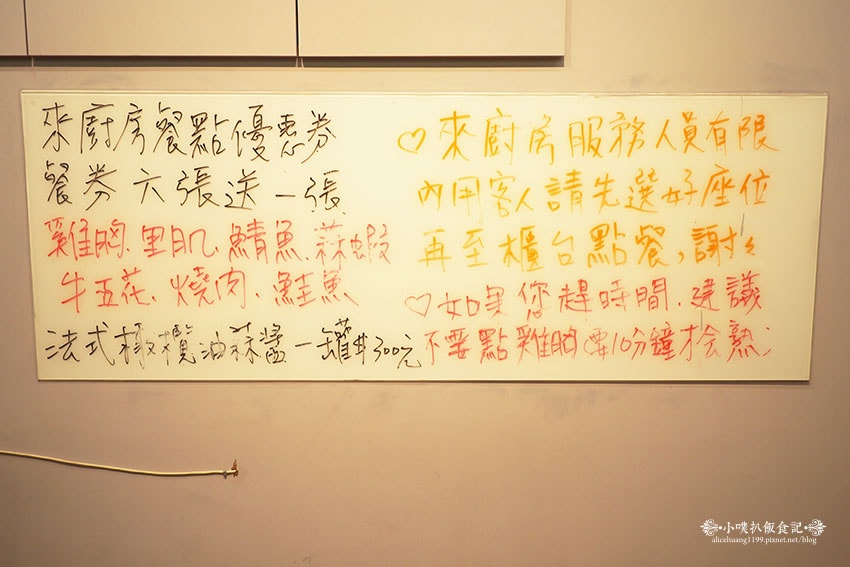 來廚房餐點優惠券
餐券六張送一張
雞胸、里肌、鯖魚、蒜蝦
牛五花、燒肉、鮭魚
法式橄欖油蒜醬一罐$300元
♡來廚房服務人員有限
內用客人請先選好座位
再至櫃台點餐,謝謝
♡如果您趕時間、建議
不要點雞胸(要10分鐘才会熟)
小噗扒飯食記
alicehuang1199.pixnet.net/blog